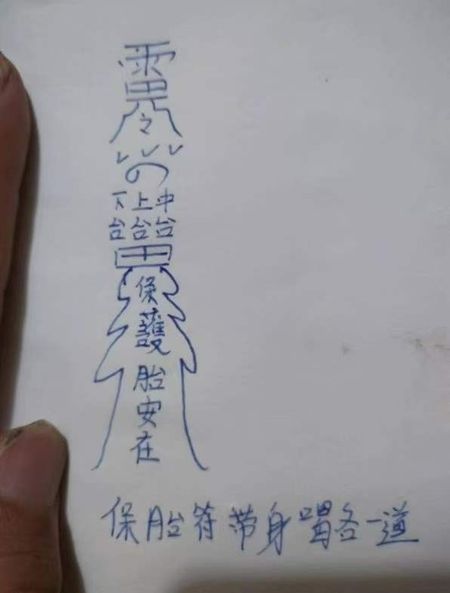 雷
令
下上中
台台台
保護胎安在
保胎符带身喝各一道